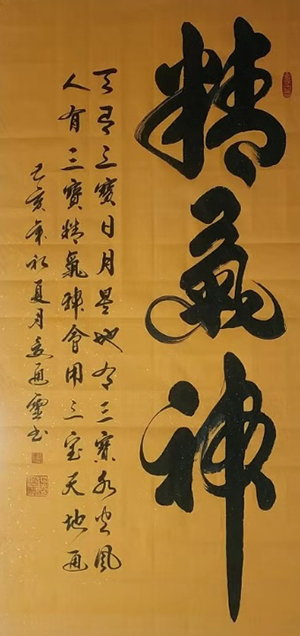 精氣神
天有三寶日月星地有三寶水火風
人有三寶精氣神會用三宝天地通
己亥年初夏月通靈书